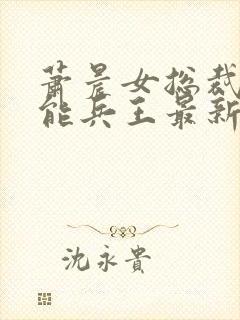 萧晨女总裁
能兵王最新
沈永貴